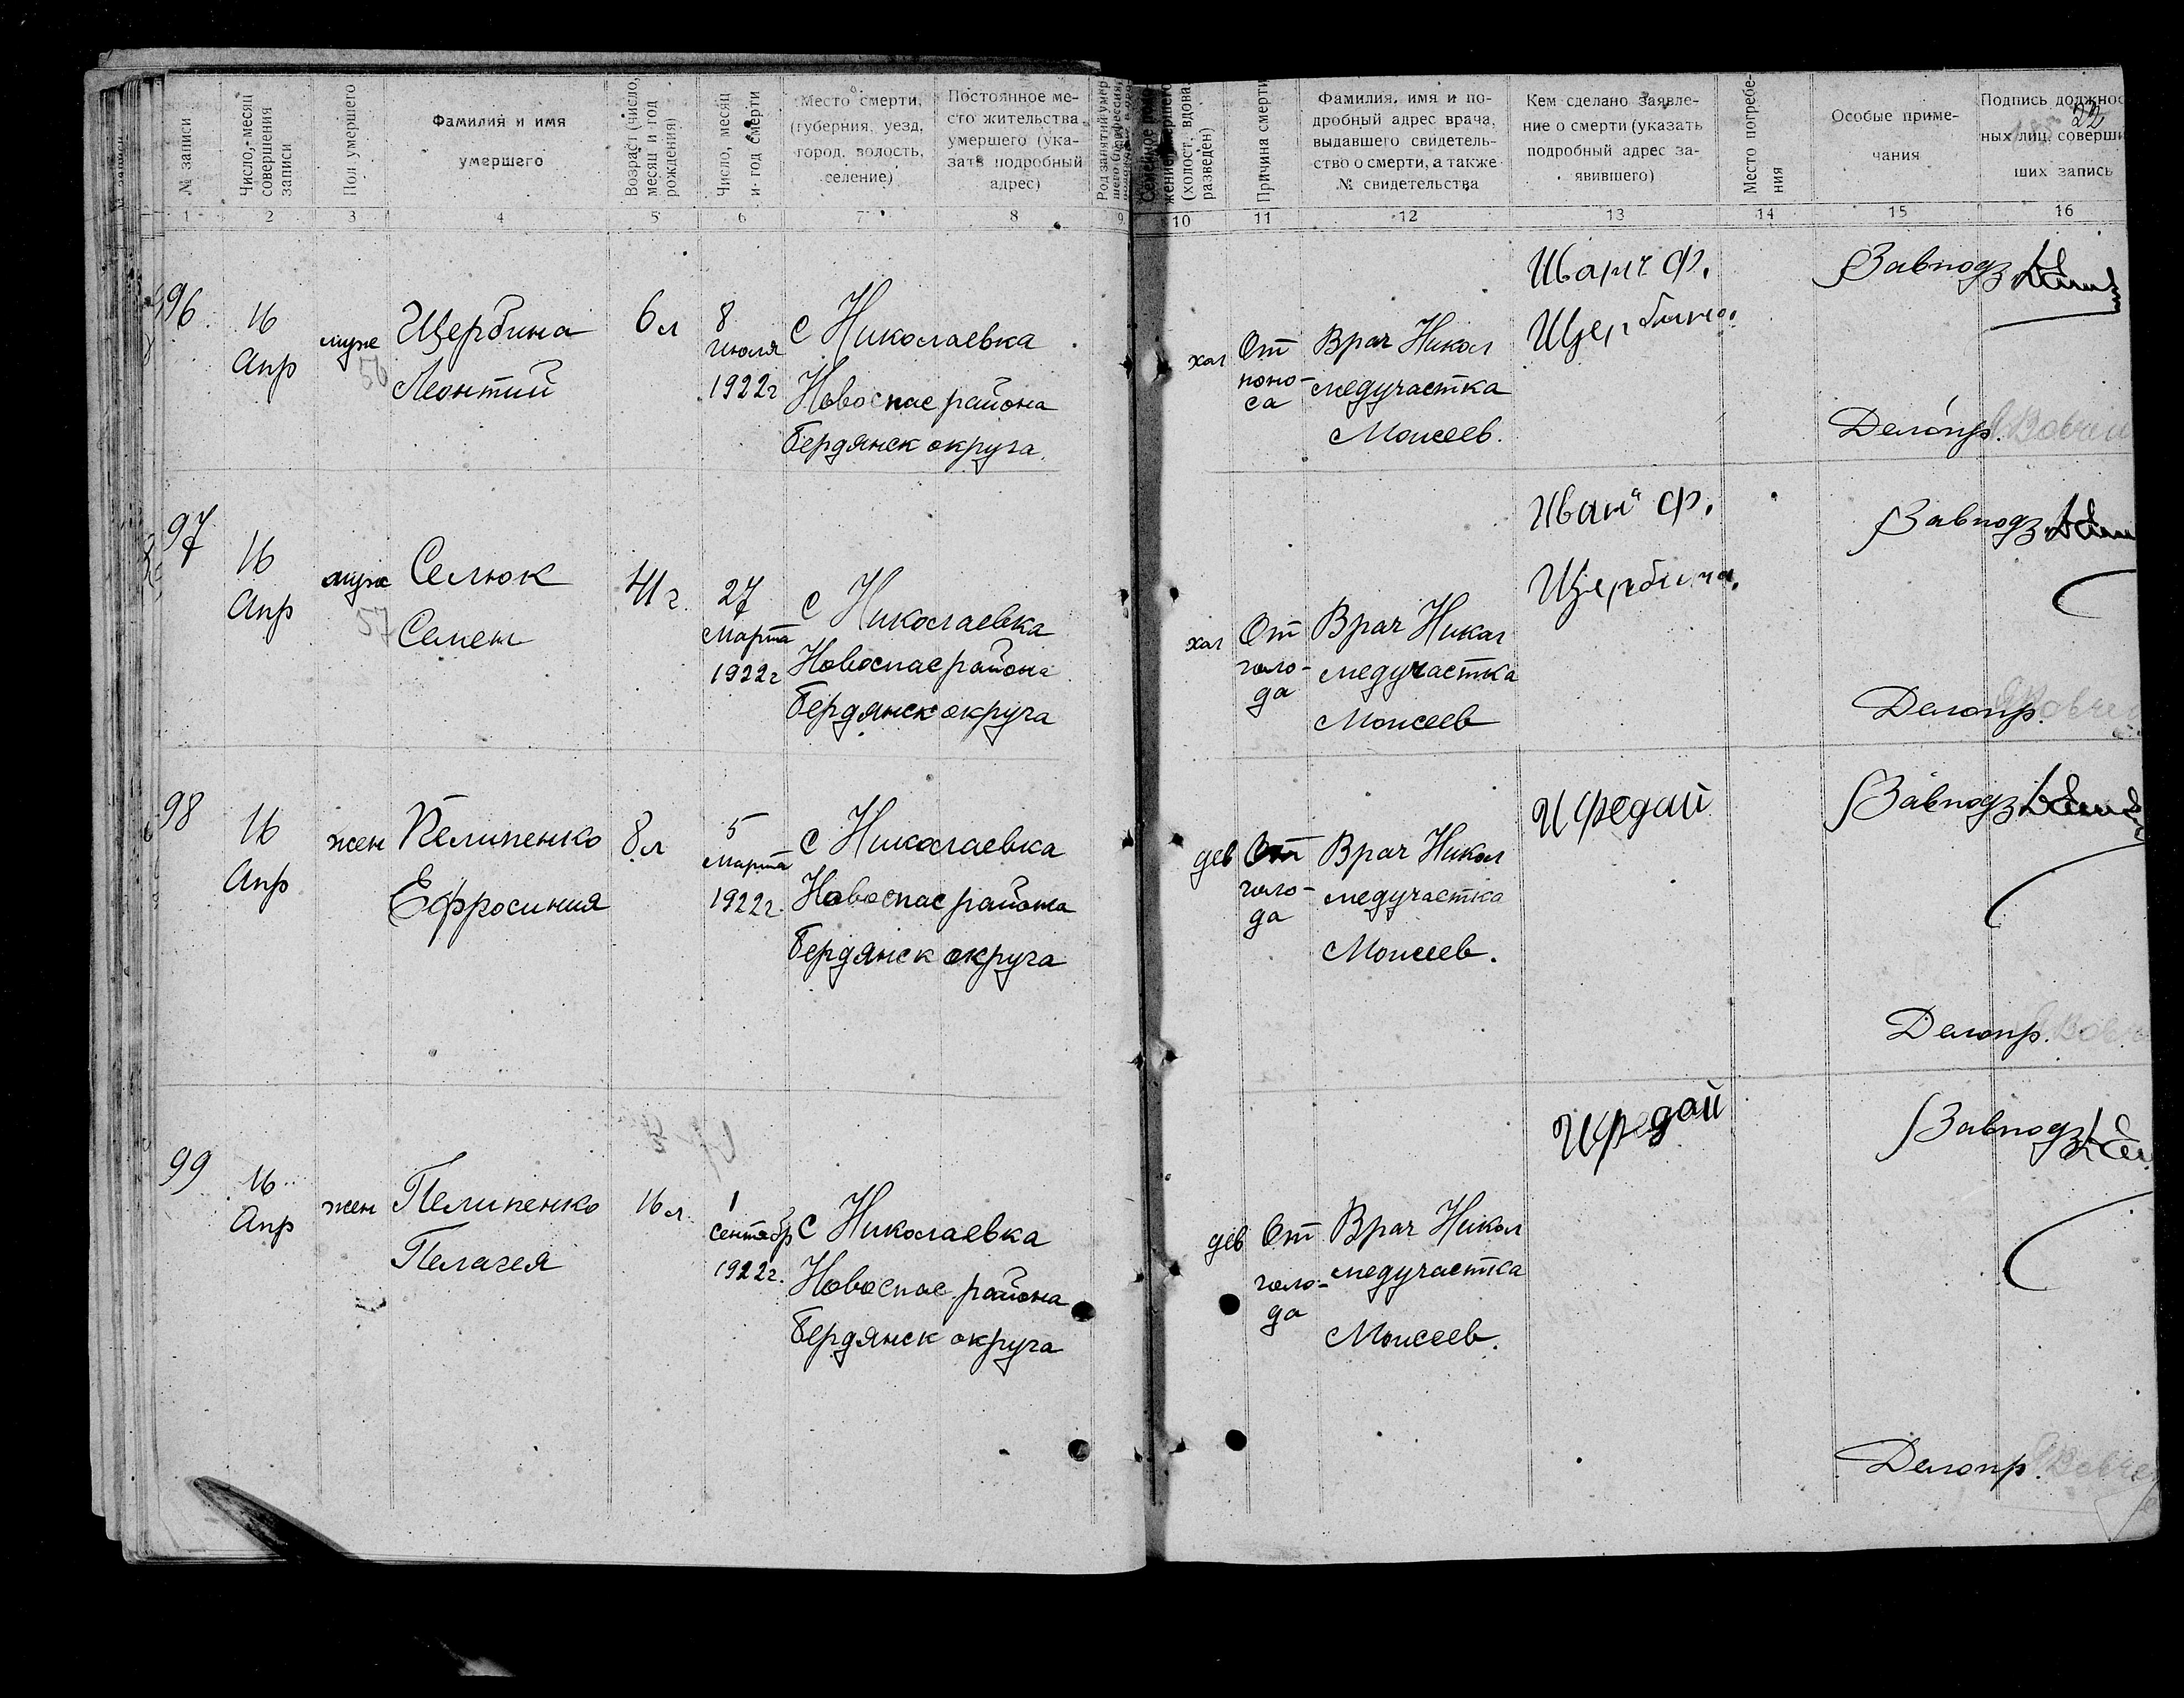 № записи
Число, месяц
совершения
записи
Пол умершего
Фамилия и имя
умершего
Возраст (число,
месяц и год
рождения)
Число, месяц
и год смерти
Место смерти,
(губерния, уезд,
город, волость,
селение)
Постоянное ме-
сто жительства
умершего (ука-
зать подробный
адрес)
(холост, вдова,
разведен)
Причина смерти
Фамилия, имя и по-
дробный адрес врача,
выдавшего свидетель-
ство о смерти, а также
№ свидетельства
Кем сделано заявле-
ние о смерти (указать
подробный адрес за-
явившего)
Место погребе-
ния
Особые приме-
чания
Подпись должнос
ных лиц, соверши
ших запись
22
1 2 3 4 5 6 7 8 9 10 11 12 13 14 15 16
96
16
Апр
муж
56
Щербина
Леонтий
6 л
8
июля
1922 г
с Николаевка
Новоспас района
Бердянск округа.
хол
От
поно-
са
Врач Никол
медучастка
Моисеев.
Иван Ф.
Щербина.
Завподз
Делопр.
97
16
Апр
муж
57
Селюк
Семен
41 г.
27
марта
1922 г
с Николаевка
Новоспас района
Бердянск округа
хол
От
голо-
да
Врач Никол
медучастка
Моисеев
Иван Ф.
Щербина.
Завподз
Делопр.
98
16
Апр
жен
Пелипенко
Ефросиния
8 л
5
марта
1922 г.
с Николаевка
Новоспас района
Бердянск округа
дев
От
голо-
да
Врач Никол
медучастка
Моисеев.
И Федай
Завподз
Делопр.
99
16
Апр
жен
Пелипенко
Пелагея
16 л.
1
сентябр
1922 г.
с Николаевка
Новоспас. района
Бердянск округа
дев
От
голо-
да
Врач Никол
медучастка
Моисеев.
И Федай
Завподз
Делопр.